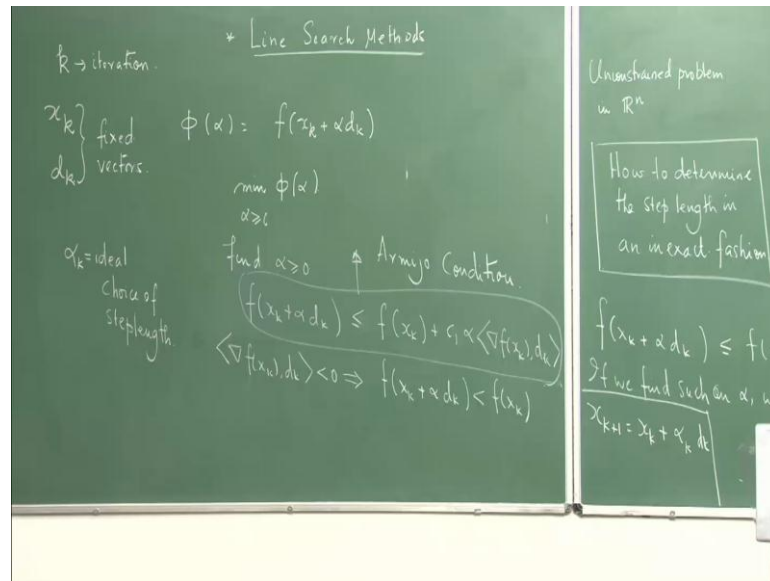 * Line Search Methods
k → iteration.
x_k } fixed
d_k } vectors.
φ(α) = f(x_k + αd_k)
min φ(α)
α≥0
α_k = ideal
choice of
steplength.
find α≥0
Armijo Condition.
f(x_k + αd_k) ≤ f(x_k) + c_1 α <∇f(x_k), d_k>
<∇f(x_k), d_k> < 0 ⇒ f(x_k + αd_k) < f(x_k)
Unconstrained problem
in ℝ^n
How to determine
the step length in
an inexact fashion
f(x_k + αd_k) ≤ f(
If we find such an α,
x_{k+1} = x_k + α_k d_k